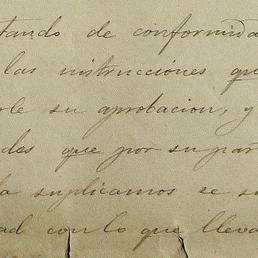 tando de conformida
las instrucciones qu
rle su aprobacion, y
des que por su par
la suplicamos se s
ad con lo que lleva